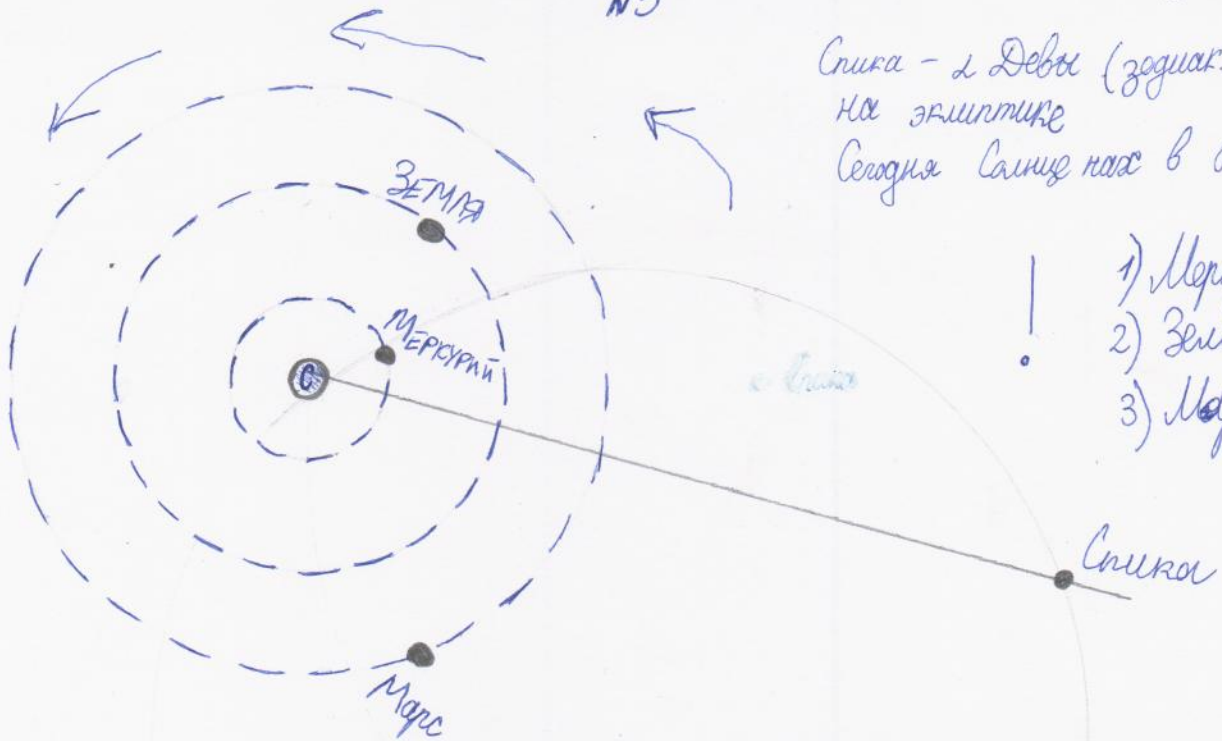 N5
Спика - α Девы (зодиак.
на эклиптике
Сегодня Солнце нах в
ЗЕМЛЯ
1) Мер
2) Зем
3) Мар
МЕРКУРИЙ
С
Спика
Марс